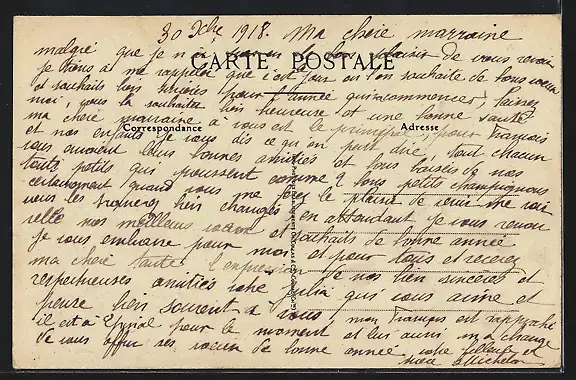 30 Xbre 1918. Ma chère marraine
malgré que je n'ai de vous revoir
CARTE POSTALE
je tiens à me rappeler que c'est jour où l'on souhaite de bons vœux
et souhaits bien sincères pour l'année qui commence, laissez
moi vous la souhaiter bien heureuse et une bonne santé
ma chère marraine à vous est le principal, pour François
Correspondance Adresse
et nos enfants je vous dis ce qu'on peut dire, tout chacun
vous envoient leurs bonnes amitiés et bons baisers de nos
touts petits qui poussent comme 2 bons petits champignons
certainement quand vous me ferez le plaisir de venir me voir
vous les trouverez bien changés en attendant je vous
nos meilleurs vœux et souhaits de bonne année
je vous embrasse pour nous et pour tous et recevez
ma chère tante l'expression de nos bien sincères et
respectueuses amitiés votre Julia qui vous aime et
pense bien souvent à vous, mon François est rapproché
il est à Epinal pour le moment et lui aussi me charge
de vous offrir ses vœux de bonne année votre filleule et
nièce Michelon